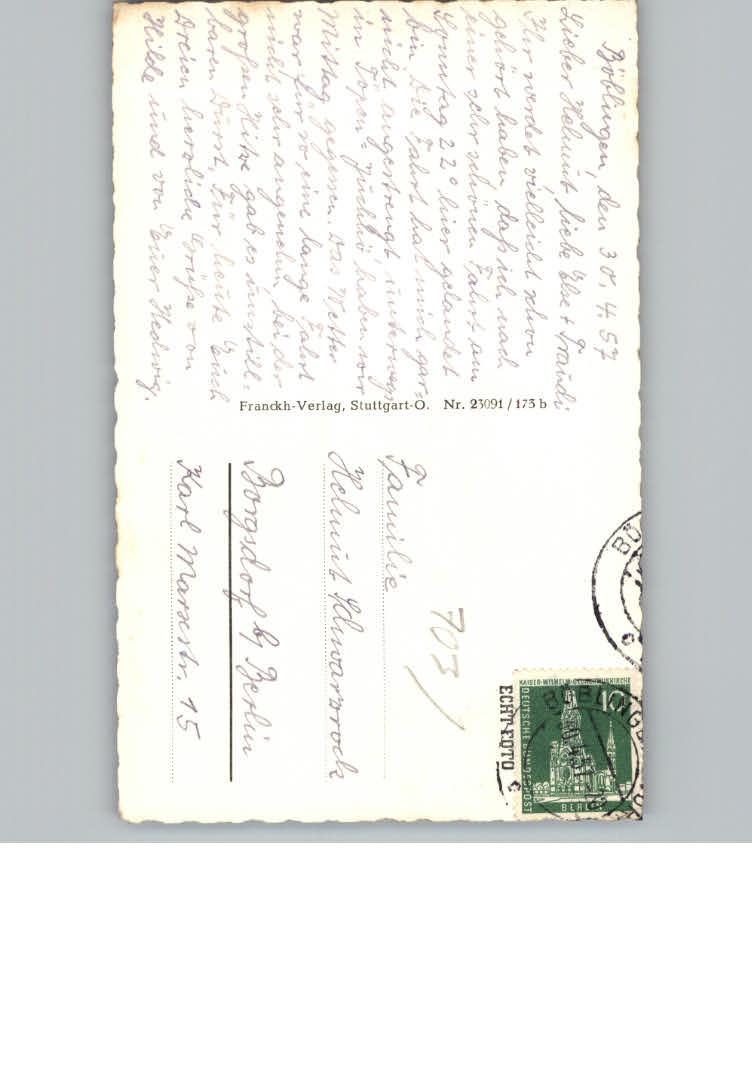 Böblingen, den 30.4.57
Lieber Helmut, liebe Else + Traudi
Ihr werdet vielleicht schon
gehört haben, daß ich nach
einer sehr schönen Fahrt am
Sonntag 22° hier gelandet
bin. Die Fahrt hat mich gar
nicht angestrengt unterwegs
im Topen = Juchhö haben wir
Mittag gegessen. Das Wetter
war für so eine lange Fahrt
nicht sehr angenehm bei der
großen Hitze gab es unstill=
baren Durst. Für heute Euch
Dreien herzliche Grüße von
Hilde und von Euer Hedwig.
Franckh-Verlag, Stuttgart-O. Nr. 23091/173 b
ECHT-FOTO
703
Familie
Helmut Schwarzrock
Borgsdorf b/ Berlin
Karl Marxstr. 15
KAISER-WILHELM-GEDÄCHTNISKIRCHE
10
DEUTSCHE BUNDESPOST
BERLIN
BÖBLINGEN
BÖ
c